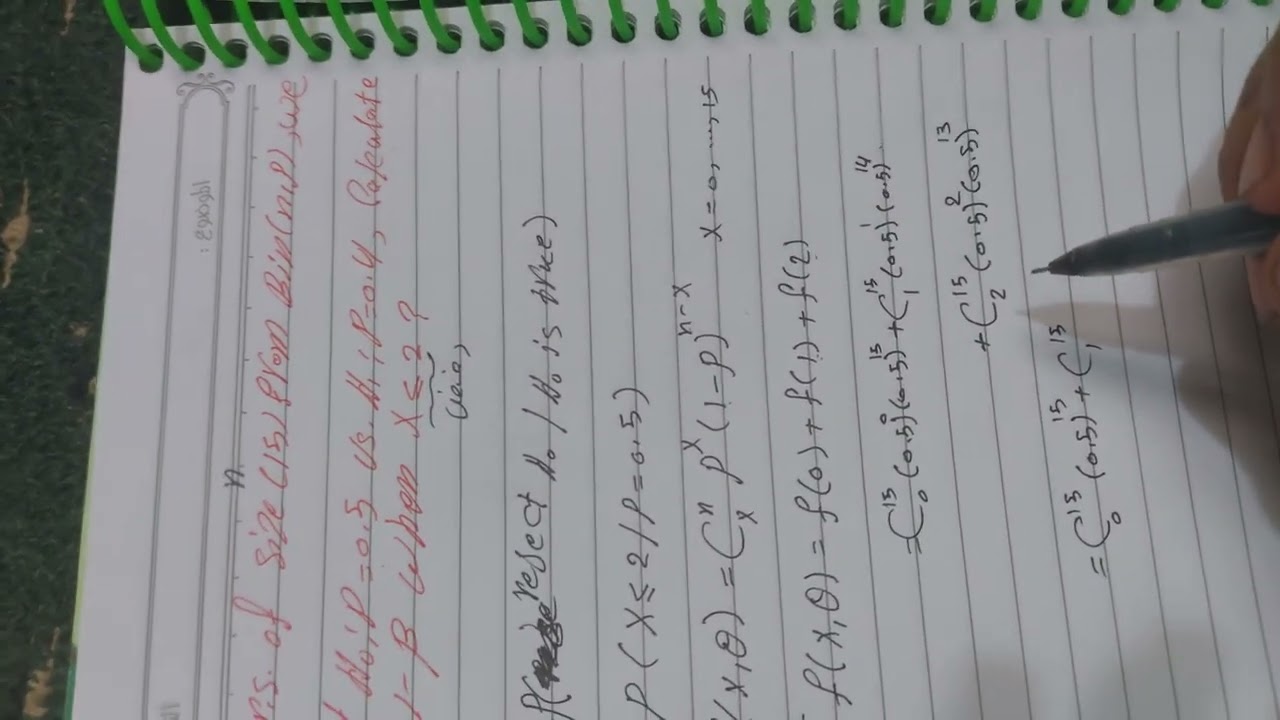 r.s. of size (15) from Bin(n,p), we
n
H₀: P=0.5 vs. H₁: P=0.4, Calculate
1-β when X ≤ 2?
P( reject H₀ / H₀ is true)
P(X ≤ 2 / P=0.5)
f(x,θ) = Cₓⁿ pˣ (1-p)ⁿ⁻ˣ x=0,...,15
f(x,θ) = f(0)+f(1)+f(2)
= C₀¹⁵ (0.5)⁰ (0.5)¹⁵ + C₁¹⁵ (0.5)¹ (0.5)¹⁴
+ C₂¹⁵ (0.5)² (0.5)¹³
= C₀¹⁵ (0.5)¹⁵ + C₁¹⁵